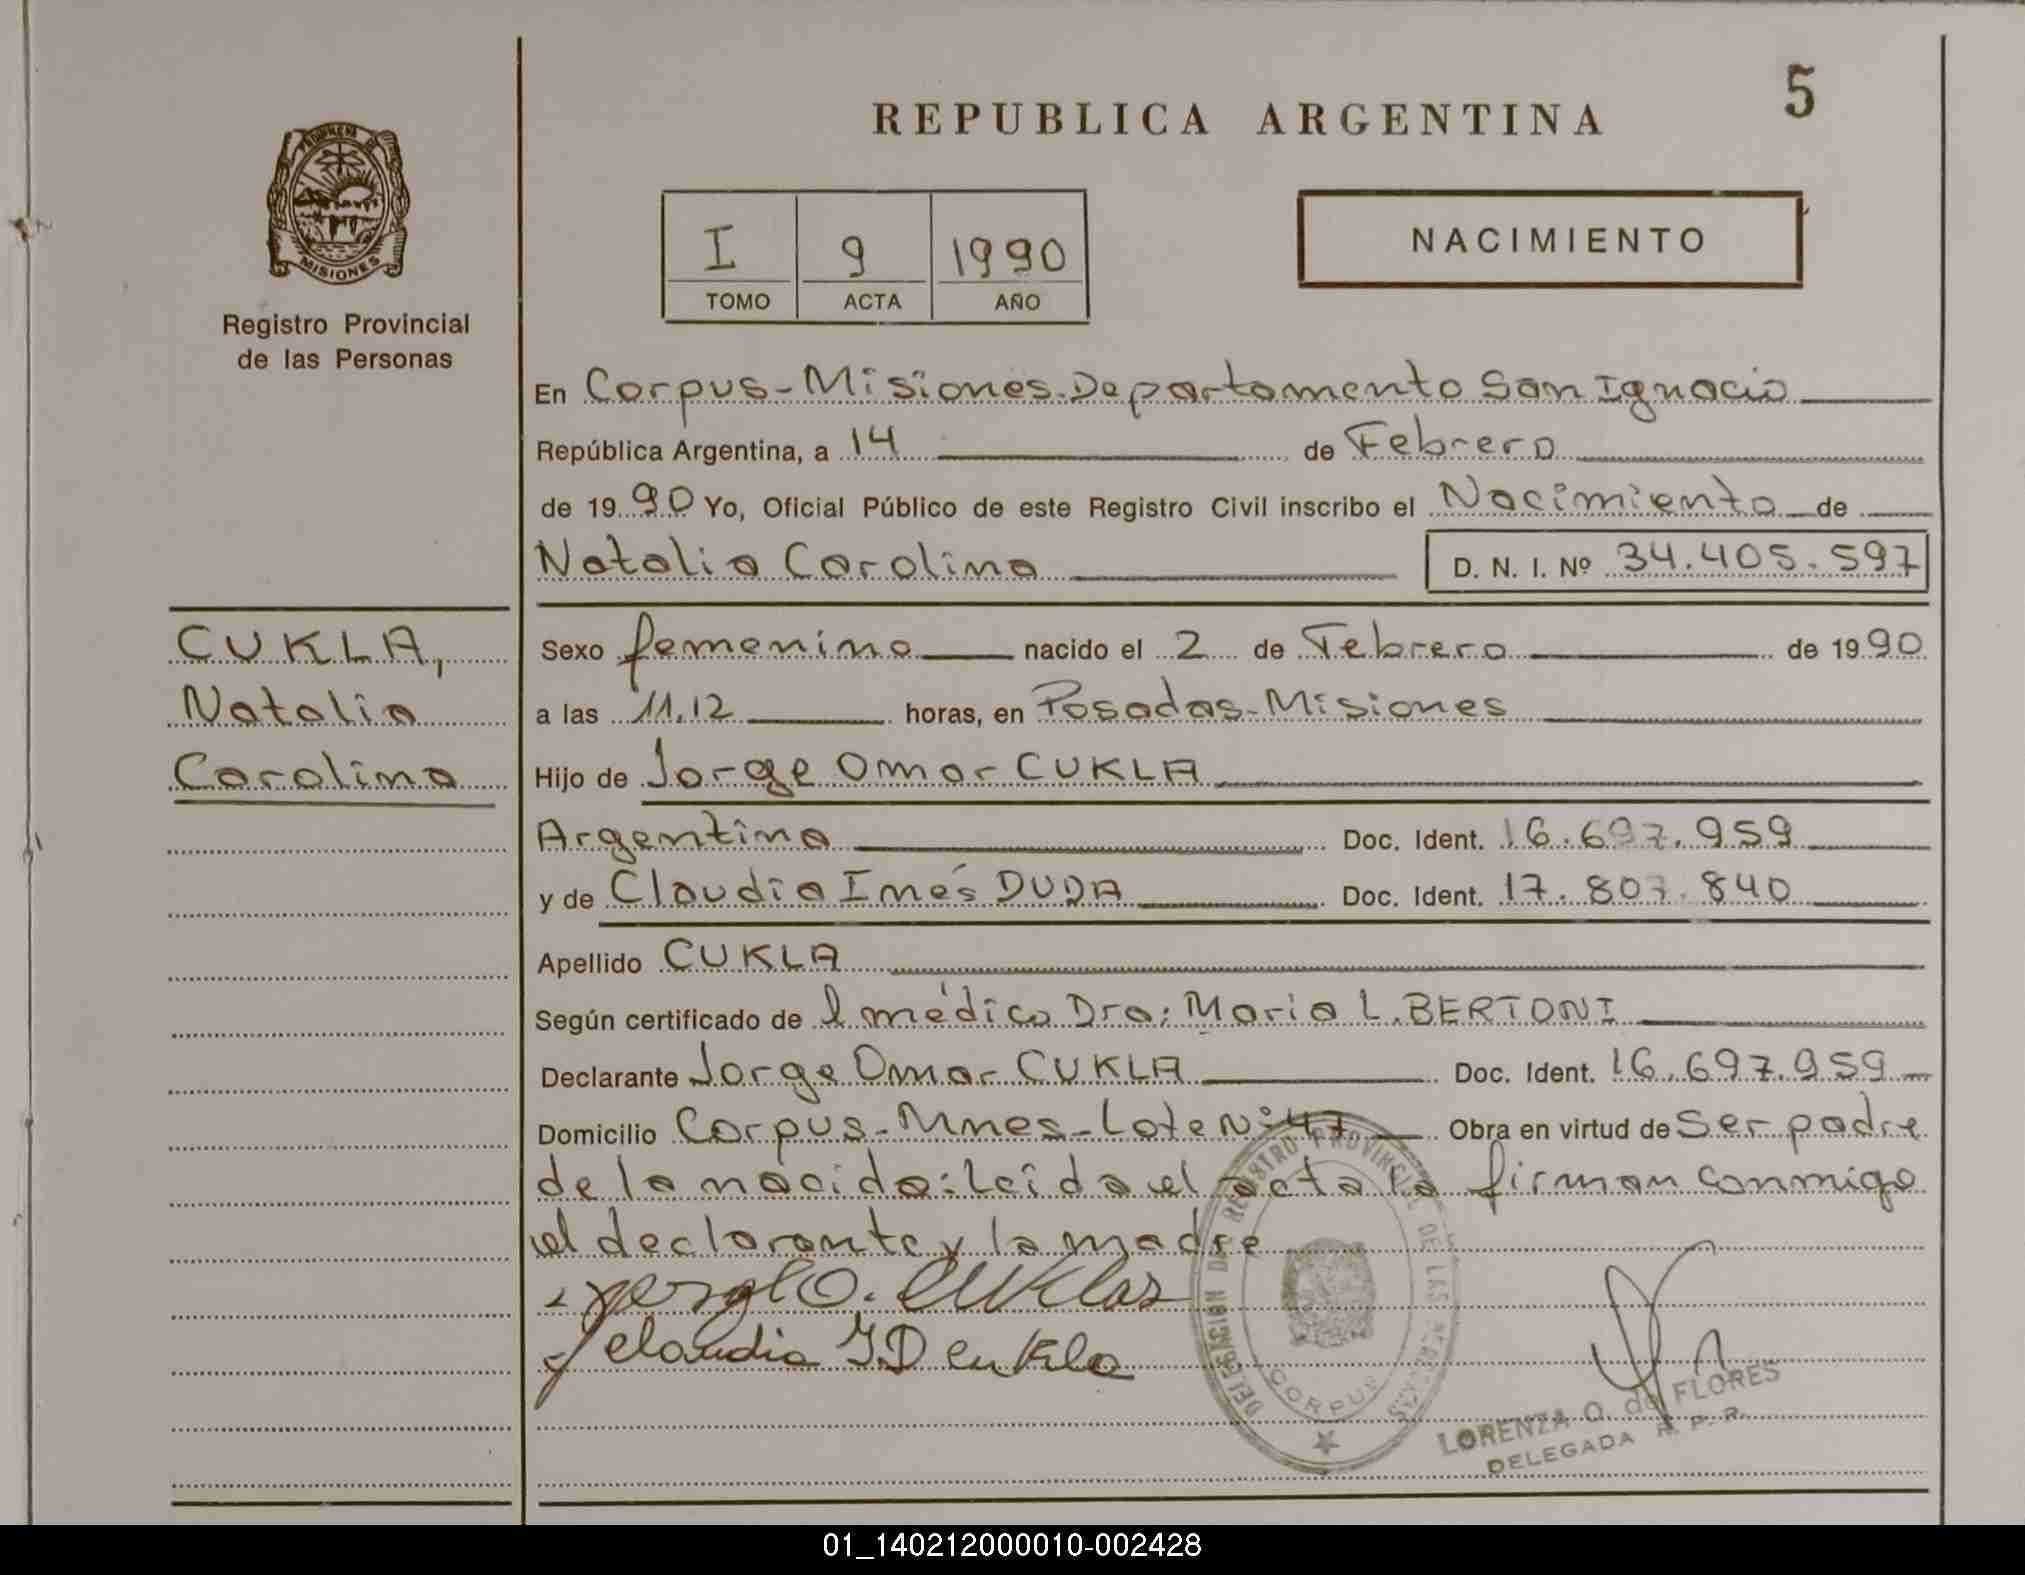 REPUBLICA ARGENTINA
5
PROVINCIA DE
MISIONES
Registro Provincial
de las Personas
I 9 1990
TOMO ACTA AÑO
NACIMIENTO
En Corpus-Misiones-Departamento San Ignacio
República Argentina, a 14 de Febrero
de 1990 Yo, Oficial Público de este Registro Civil inscribo el Nacimiento de
Natalia Carolina D. N. I. Nº 34.405.597
CUKLA,
Natalia
Carolina
Sexo femenino nacido el 2 de Febrero de 1990
a las 11,12 horas, en Posadas-Misiones
Hijo de Jorge Omar CUKLA
Argentina Doc. Ident. 16.697.959
y de Claudia Inés DUDA Doc. Ident. 17.807.840
Apellido CUKLA
Según certificado de l médico Dra: Maria L. BERTONI
Declarante Jorge Omar CUKLA Doc. Ident. 16.697.959
Domicilio Corpus-Mnes-Lote Nº 47 Obra en virtud de Ser padre
de la nacida: Leída el acta la firman conmigo
el declarante y la madre
Claudia I.D Cukla
DELEGACION DEL REGISTRO PROVINCIAL DE LAS PERSONAS
CORPUS
LORENZA O. de FLORES
DELEGADA R. P. R.
01_140212000010-002428